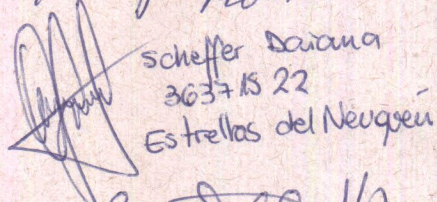 scheffer Daiana
36371522
Estrellas del Neuquén